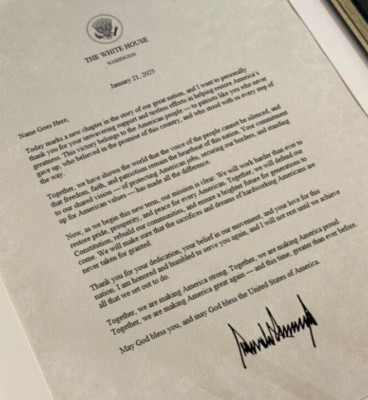 THE WHITE HOUSE
WASHINGTON
January 21, 2025
Name Goes Here,
Today marks a new chapter in the story of our great nation, and I want to personally
thank you for your unwavering support and tireless efforts in helping restore America's
greatness. This victory belongs to the American people — to patriots like you who never
gave up, who believed in the promise of this country, and who stood with us every step of
the way.
Together, we have shown the world that the voice of the people cannot be silenced, and
that freedom, faith, and patriotism remain the heartbeat of this nation. Your commitment
to our shared vision — of promoting American jobs, securing our borders, and standing
up for American values — has made all the difference.
Now, as we begin this new term, our mission is clear. We will work harder than ever to
restore pride, prosperity, and peace for every American. Together, we will defend our
Constitution, rebuild our communities, and ensure a brighter future for generations to
come. We will make sure that the sacrifices and dreams of hardworking Americans are
never taken for granted.
Thank you for your dedication, your belief in our movement, and your love for this
nation. I am honored and humbled to serve you again, and I will not rest until we achieve
all that we set out to do.
Together, we are making America strong. Together, we are making America proud.
Together, we are making America great again — and this time, greater than ever before.
May God bless you, and may God bless the United States of America.